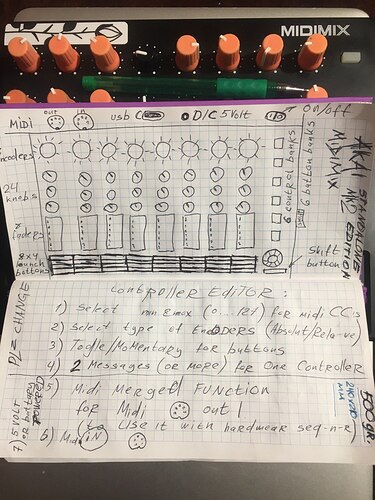 MIDIMIX
Midi
OUT
IN
USB C
D/C 5Volt
ON/OFF
ncoders
24
knobs
8x4
launch
buttons
6 control banks
6 button banks
Shift
button
AKAI
MIDIMIX
MK2
STANDALONE
EDITION
PLZ CHANGE
CONTROLLER EDITOR:
1) Select min & max (0...127) for midi CC's
2) Select type of ENCODERS (Absolut/Rela-ve)
3) Togle/Momentary for buttons
4) 2 Messages (or more) for One Controller
5) Midi Merget FUNCTION
for Midi out!
6) Midi IN to Use it with hardwear seq-n-r
7) 5 VOLT
OR battary
POWERED
500gr.